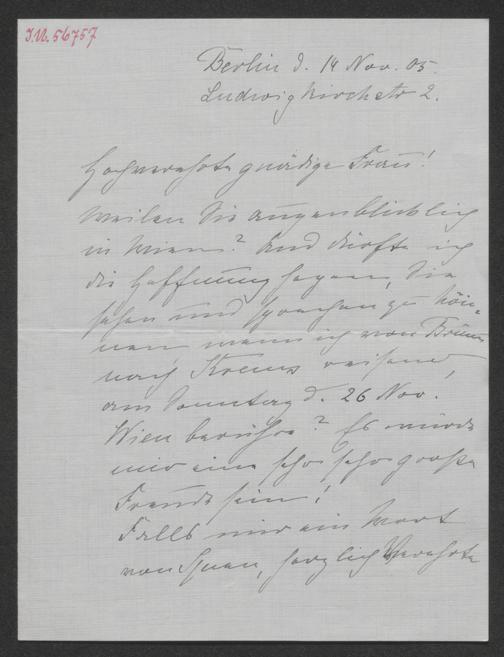 I.N. 56757
Berlin d. 14 Nov. 05.
Ludwigkirchstr 2.
Hochverehrte gnädige Frau!
Weilen Sie augenblicklich
in Wien? Und dürfte ich
die Hoffnung hegen, Sie
sehen und sprechen zu kön-
nen wenn ich von Brünn
nach Krems reisend,
am Sonntag d. 26 Nov.
Wien berühre? Es würde
mir eine sehr sehr große
Freude sein!
Falls mir ein Wort
von Ihnen, herzlich Verehrte